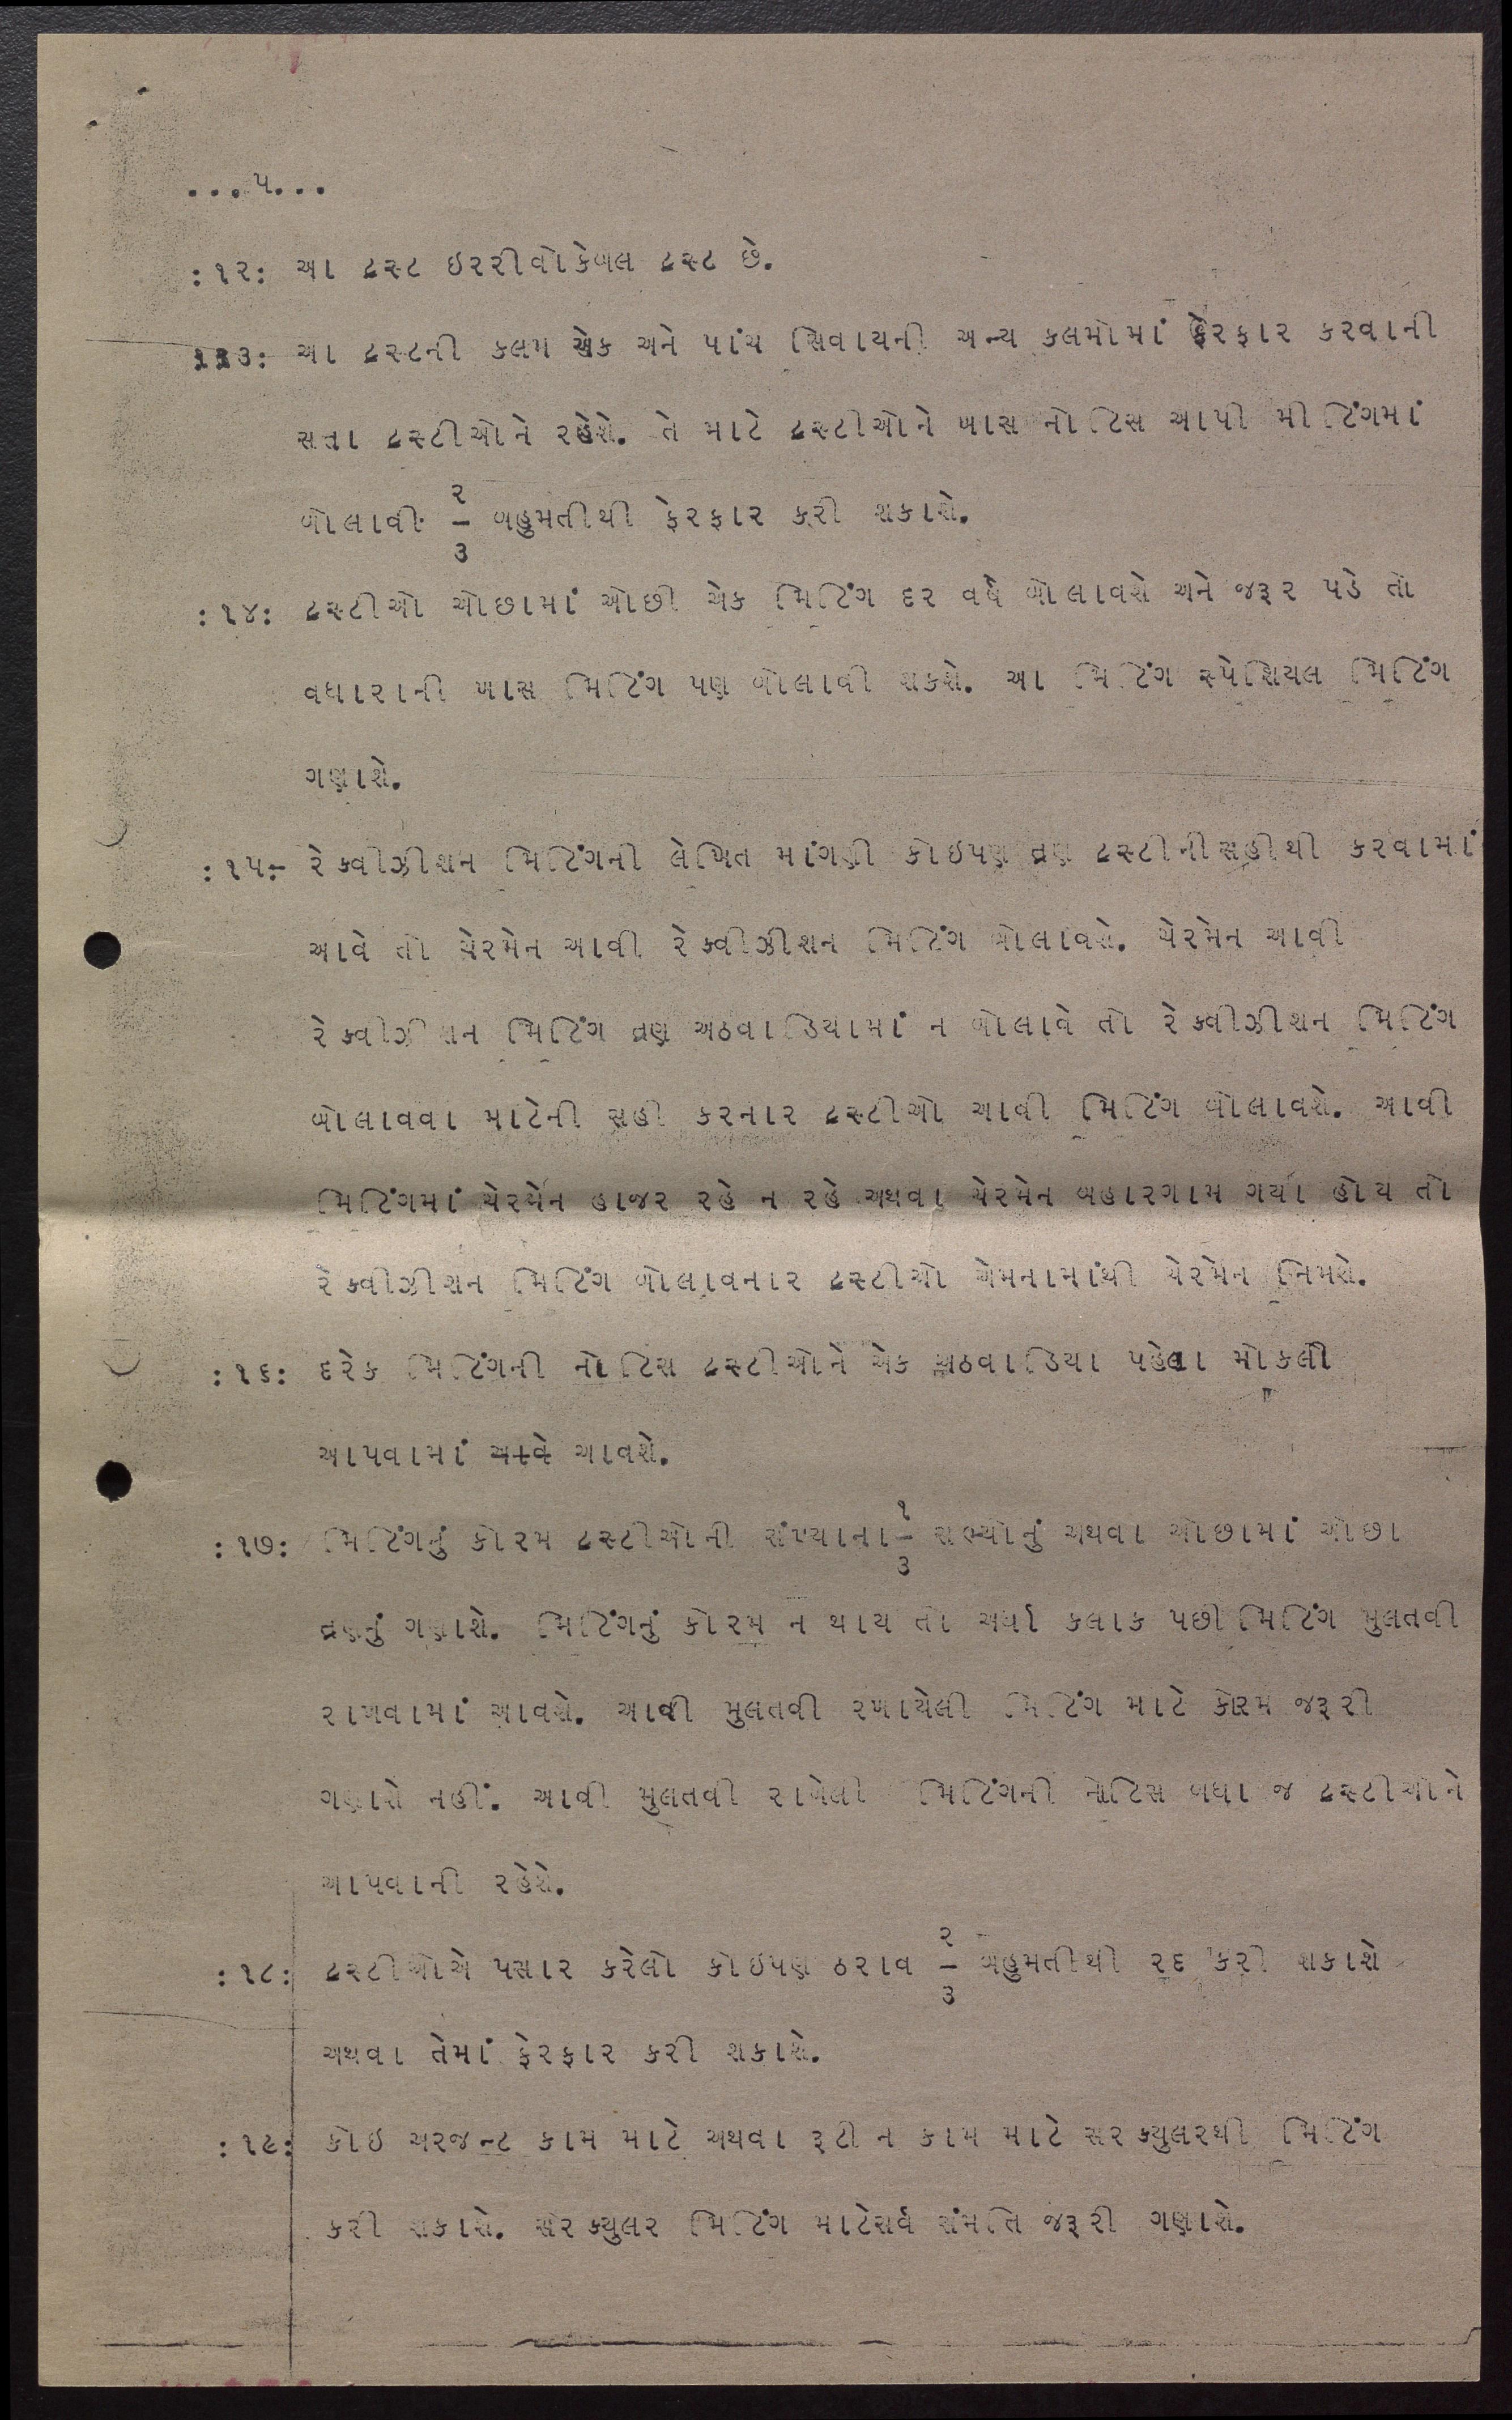 ...૫...
:૧૨: આ ટ્રસ્ટ ઇરરીવોકેબલ ટ્રસ્ટ છે.
:૧૩: આ ટ્રસ્ટની કલમ એક અને પાંચ સિવાયની અન્ય કલમોમાં ફેરફાર કરવાની
સત્તા ટ્રસ્ટીઓને રહેશે. તે માટે ટ્રસ્ટીઓને ખાસ નોટિસ આપી મીટિંગમાં
બોલાવી ૨/૩ બહુમતીથી ફેરફાર કરી શકાશે.
:૧૪: ટ્રસ્ટીઓ ઓછામાં ઓછી એક મિટિંગ દર વર્ષે બોલાવશે અને જરૂર પડે તો
વધારાની ખાસ મિટિંગ પણ બોલાવી શકશે. આ મિટિંગ સ્પેશિયલ મિટિંગ
ગણાશે.
:૧૫:- રેક્વીઝીશન મિટિંગની લેખિત માંગણી કોઇપણ ત્રણ ટ્રસ્ટીનીસહીથી કરવામાં
આવે તો ચેરમેન આવી રેક્વીઝીશન મિટિંગ બોલાવશે. ચેરમેન આવી
રેક્વીઝીશન મિટિંગ ત્રણ અઠવાડિયામાં ન બોલાવે તો રેક્વીઝીશન મિટિંગ
બોલાવવા માટેની સહી કરનાર ટ્રસ્ટીઓ આવી મિટિંગ બોલાવશે. આવી
મિટિંગમાં ચેરમેન હાજર રહે ન રહે અથવા ચેરમેન બહારગામ ગયા હોય તો
રેક્વીઝીશન મિટિંગ બોલાવનાર ટ્રસ્ટીઓ એમનામાંથી ચેરમેન નિમશે.
:૧૬: દરેક મિટિંગની નોટિસ ટ્રસ્ટીઓને એક અઠવાડિયા પહેલા મોકલી
આપવામાં આવે આવશે.
:૧૭: મિટિંગનું કોરમ ટ્રસ્ટીઓની સંખ્યાના ૧/૩ સભ્યોનું અથવા ઓછામાં ઓછા
ત્રણનું ગણાશે. મિટિંગનું કોરમ ન થાય તો અર્ધા કલાક પછી મિટિંગ મુલતવી
રાખવામાં આવશે. આવી મુલતવી રખાયેલી મિટિંગ માટે કોરમ જરૂરી
ગણાશે નહીં. આવી મુલતવી રાખેલી મિટિંગની નોટિસ બધા જ ટ્રસ્ટીઓને
આપવાની રહેશે.
:૧૮: ટ્રસ્ટીઓએ પસાર કરેલો કોઇપણ ઠરાવ ૨/૩ બહુમતીથી રદ કરી શકાશે
અથવા તેમાં ફેરફાર કરી શકાશે.
:૧૯: કોઇ અરજન્ટ કામ માટે અથવા રૂટીન કામ માટે સરક્યુલરથી મિટિંગ
કરી શકાશે. સરક્યુલર મિટિંગ માટેસર્વ સંમતિ જરૂરી ગણાશે.